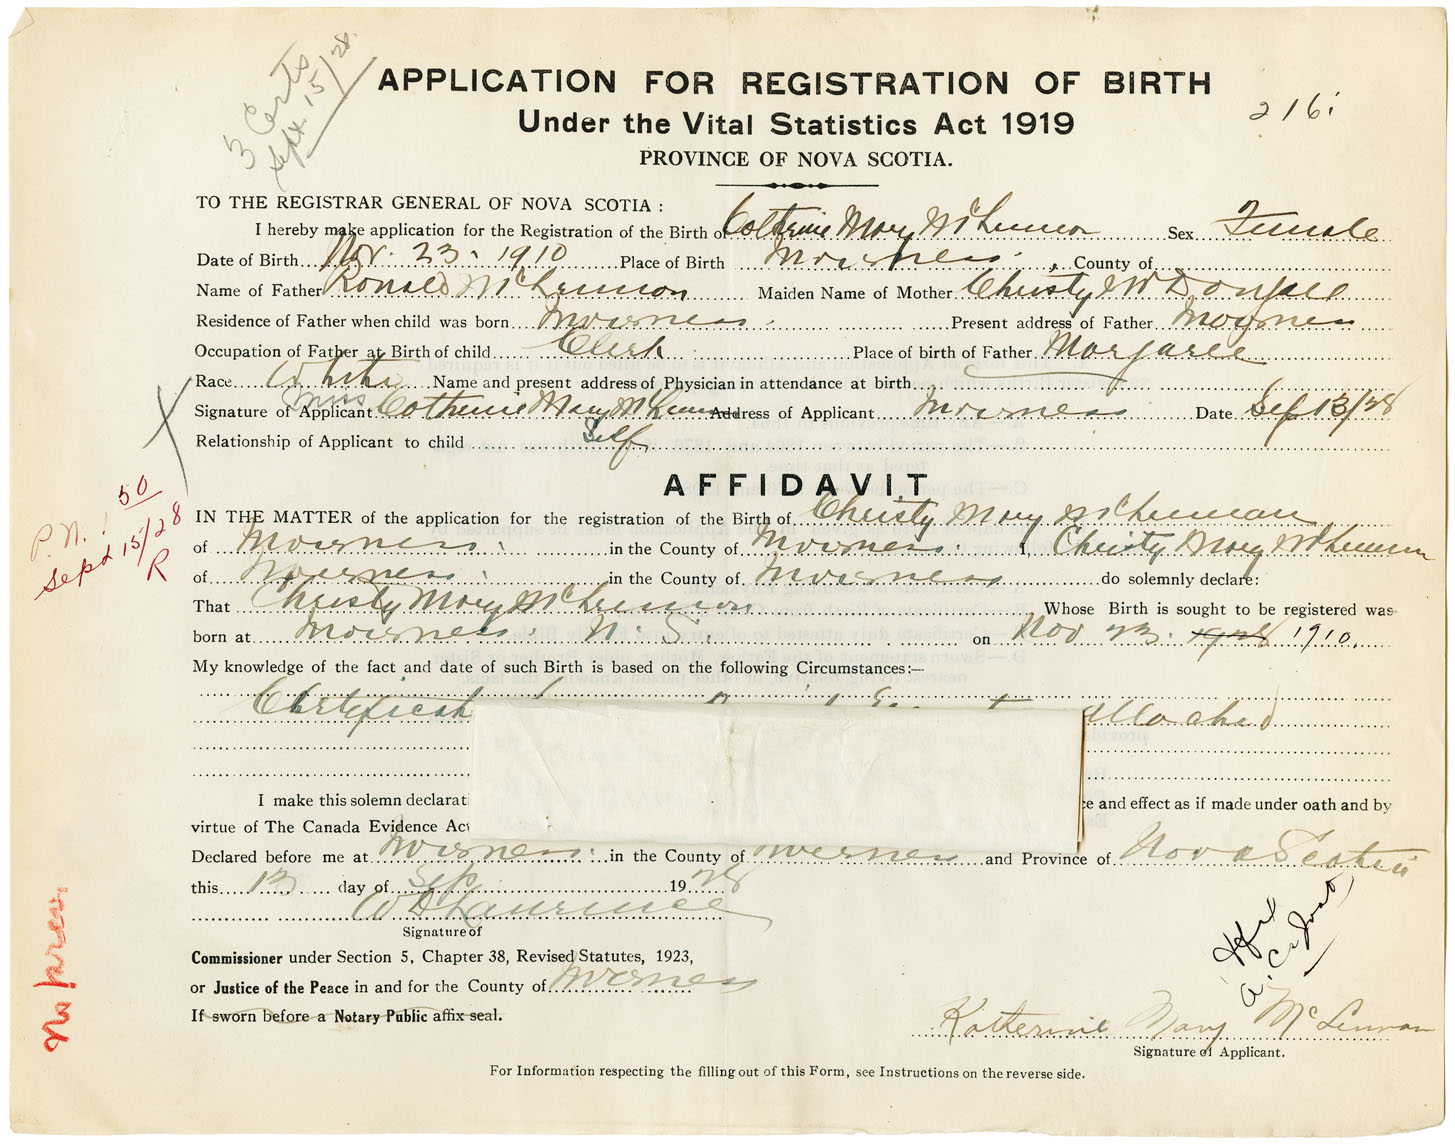 3 Certs
Sept. 15/28.
APPLICATION FOR REGISTRATION OF BIRTH
216
Under the Vital Statistics Act 1919
PROVINCE OF NOVA SCOTIA.
TO THE REGISTRAR GENERAL OF NOVA SCOTIA :
I hereby make application for the Registration of the Birth of Catherine Mary McLennon Sex Female
Date of Birth Nov. 23. 1910 Place of Birth Inverness. County of
Name of Father Ronald McLennon Maiden Name of Mother Christy McDougall
Residence of Father when child was born Inverness. Present address of Father Inverness
Occupation of Father at Birth of child Clerk Place of birth of Father Margaree
Race White Name and present address of Physician in attendance at birth
Signature of Applicant Miss Catherine Mary McLennon Address of Applicant Inverness Date Sep 13/28
Relationship of Applicant to child Self
AFFIDAVIT
P.N. 50
Sept 15/28
R
IN THE MATTER of the application for the registration of the Birth of Christy Mary McLennan
of Inverness. in the County of Inverness. I, Christy Mary McLennon
of Inverness. in the County of Inverness do solemnly declare:
That Christy Mary McLennon Whose Birth is sought to be registered was
born at Inverness. N. S. on Nov 23. 1928 1910.
My knowledge of the fact and date of such Birth is based on the following Circumstances:—
Certificate attached
I make this solemn declarati e and effect as if made under oath and by
virtue of The Canada Evidence Act
Declared before me at Inverness. in the County of Inverness and Province of Nova Scotia
this 13 day of Sep 1928
W D Laurence
Signature of
Commissioner under Section 5, Chapter 38, Revised Statutes, 1923,
or Justice of the Peace in and for the County of Inverness
If sworn before a Notary Public affix seal.
No prev.
Katherine Mary McLennan
Signature of Applicant.
For Information respecting the filling out of this Form, see Instructions on the reverse side.